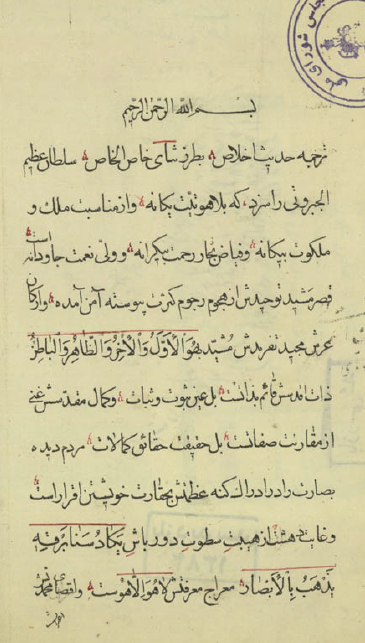 مجلس شورای ملی
بسم الله الرحمن الرحیم
ترجمه حدیث اخلاص بطرز ثنای خاص الخاص سلطان عظیم
الجبروتی را سزد که بلاهوتیت یکانه و از مناسبت ملک و
ملکوت بیکانه و فیاض بحار رحمت بیکرانه و ولی نعمت جاودانه است
قصر مشید توحیدش از هجوم رجوم کثرت پیوسته آمن آمده و ارکان
عرش مجید تفریدش مشید بهو الاول والآخر والظاهر والباطن
ذات اقدسش قائم بذاتست بل عین ثبوت و ثبات و کمال مقدسش غنی
از مقارنت صفاتست بل حقیقت حقائق کمالات مردم دیده
بصارت را در ادراک کنه عظمتش بحقارت خویشتن اقرار است
و غایت دهشت از هیبت سطوت دور باش یکاد سنا برقه
یذهب بالابصار معراج معرفتش لا هو الا هوست و اقصای